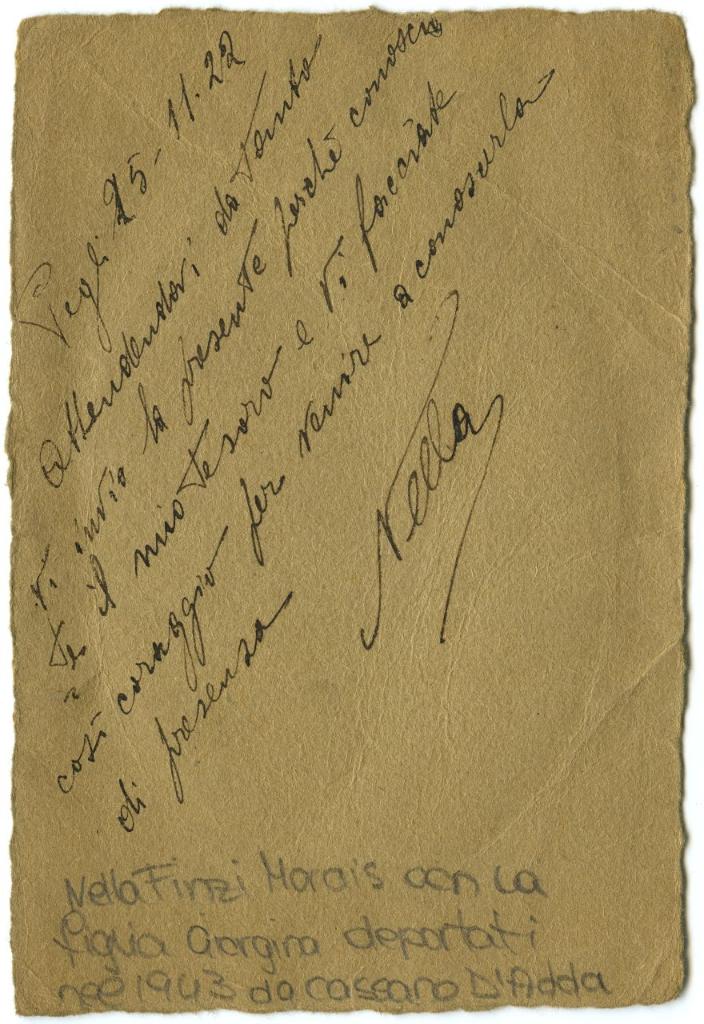 Pegli 25-11.22
Attendendovi da tanto
vi invio la presente perchè conoscia
te il mio tesoro e vi facciate
così coraggio per venire a conoscerla
di presenza
Nella
Nella Finzi Morais con la
figlia Giorgina deportati
nel 1943 da Cassano D'Adda